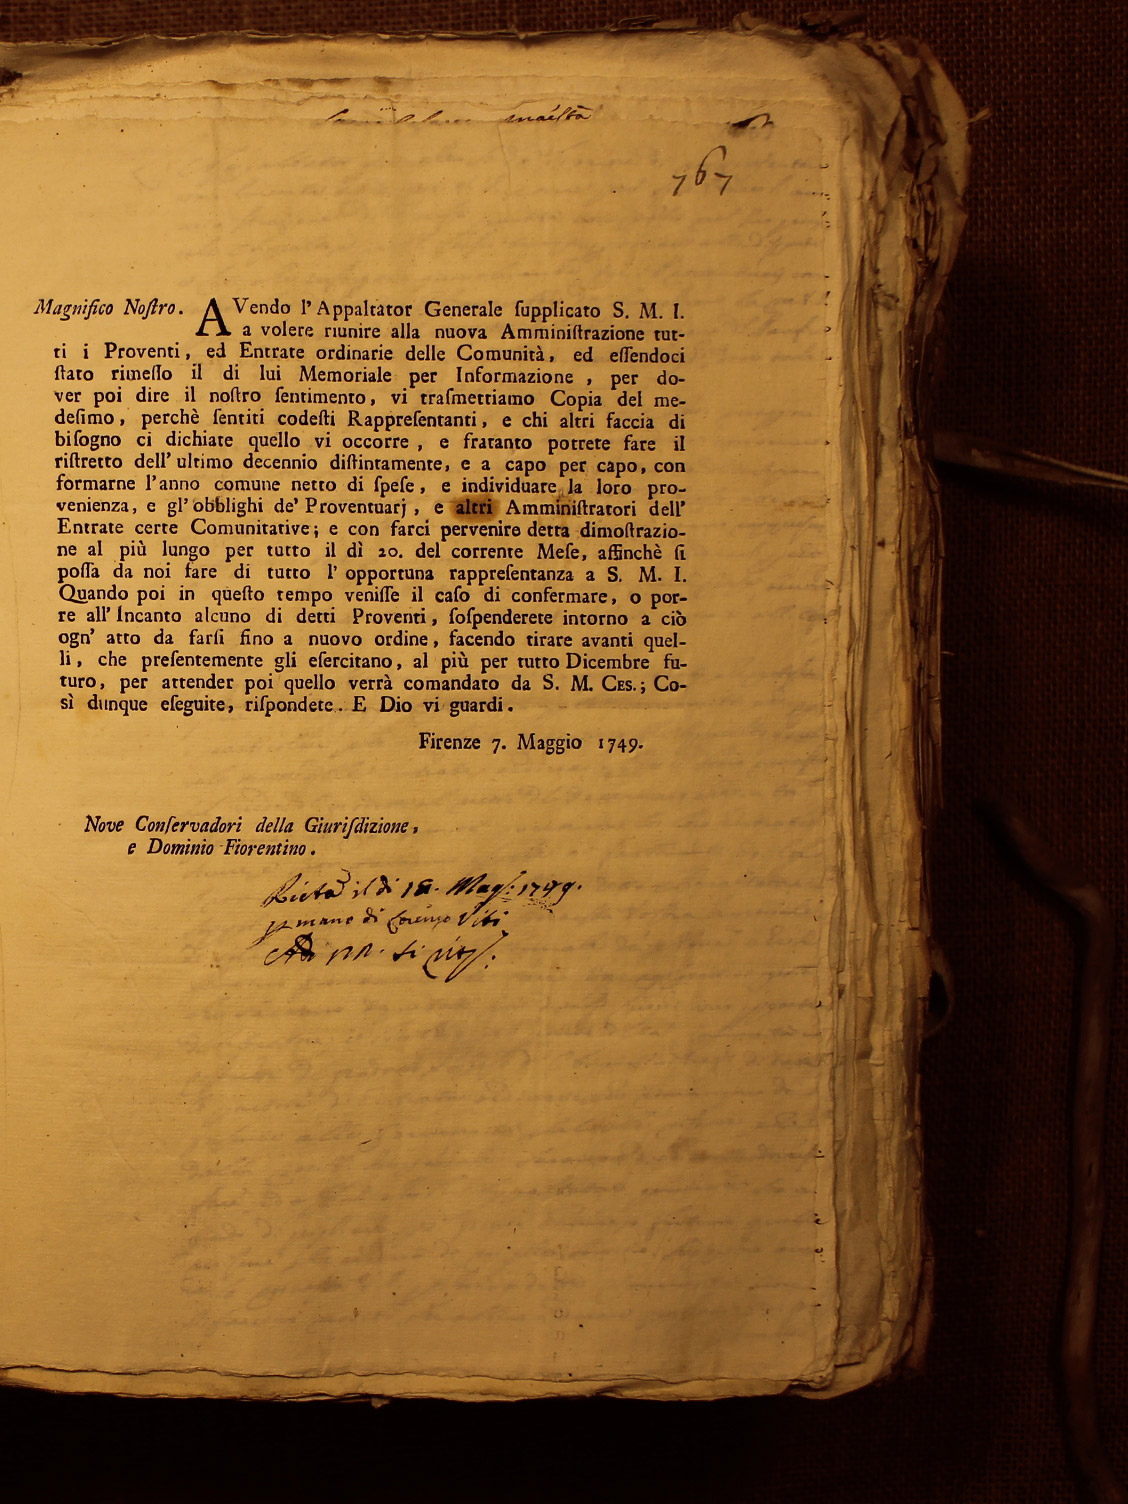 maestà
767
Magnifico Noſtro. AVendo l'Appaltator Generale ſupplicato S. M. I.
a volere riunire alla nuova Amminiſtrazione tut-
ti i Proventi, ed Entrate ordinarie delle Comunità, ed eſſendoci
ſtato rimeſſo il di lui Memoriale per Informazione, per do-
ver poi dire il noſtro ſentimento, vi traſmettiamo Copia del me-
deſimo, perchè ſentiti codeſti Rappreſentanti, e chi altri faccia di
biſogno ci dichiate quello vi occorre, e fratanto potrete fare il
riſtretto dell'ultimo decennio diſtintamente, e a capo per capo, con
formarne l'anno comune netto di ſpeſe, e individuare la loro pro-
venienza, e gl'obblighi de' Proventuarj, e altri Amminiſtratori dell'
Entrate certe Comunitative; e con farci pervenire detta dimoſtrazio-
ne al più lungo per tutto il dì 20. del corrente Meſe, affinchè ſi
poſſa da noi fare di tutto l'opportuna rappreſentanza a S. M. I.
Quando poi in queſto tempo veniſſe il caſo di confermare, o por-
re all'Incanto alcuno di detti Proventi, ſoſpenderete intorno a ciò
ogn' atto da farſi fino a nuovo ordine, facendo tirare avanti quel-
li, che preſentemente gli eſercitano, al più per tutto Dicembre fu-
turo, per attender poi quello verrà comandato da S. M. CES.; Co-
sì dunque eſeguite, riſpondete. E Dio vi guardi.
Firenze 7. Maggio 1749.
Nove Conſervadori della Giuriſdizione,
e Dominio Fiorentino.
il dì Mag: 1749.
mano di Lorenzo Viti